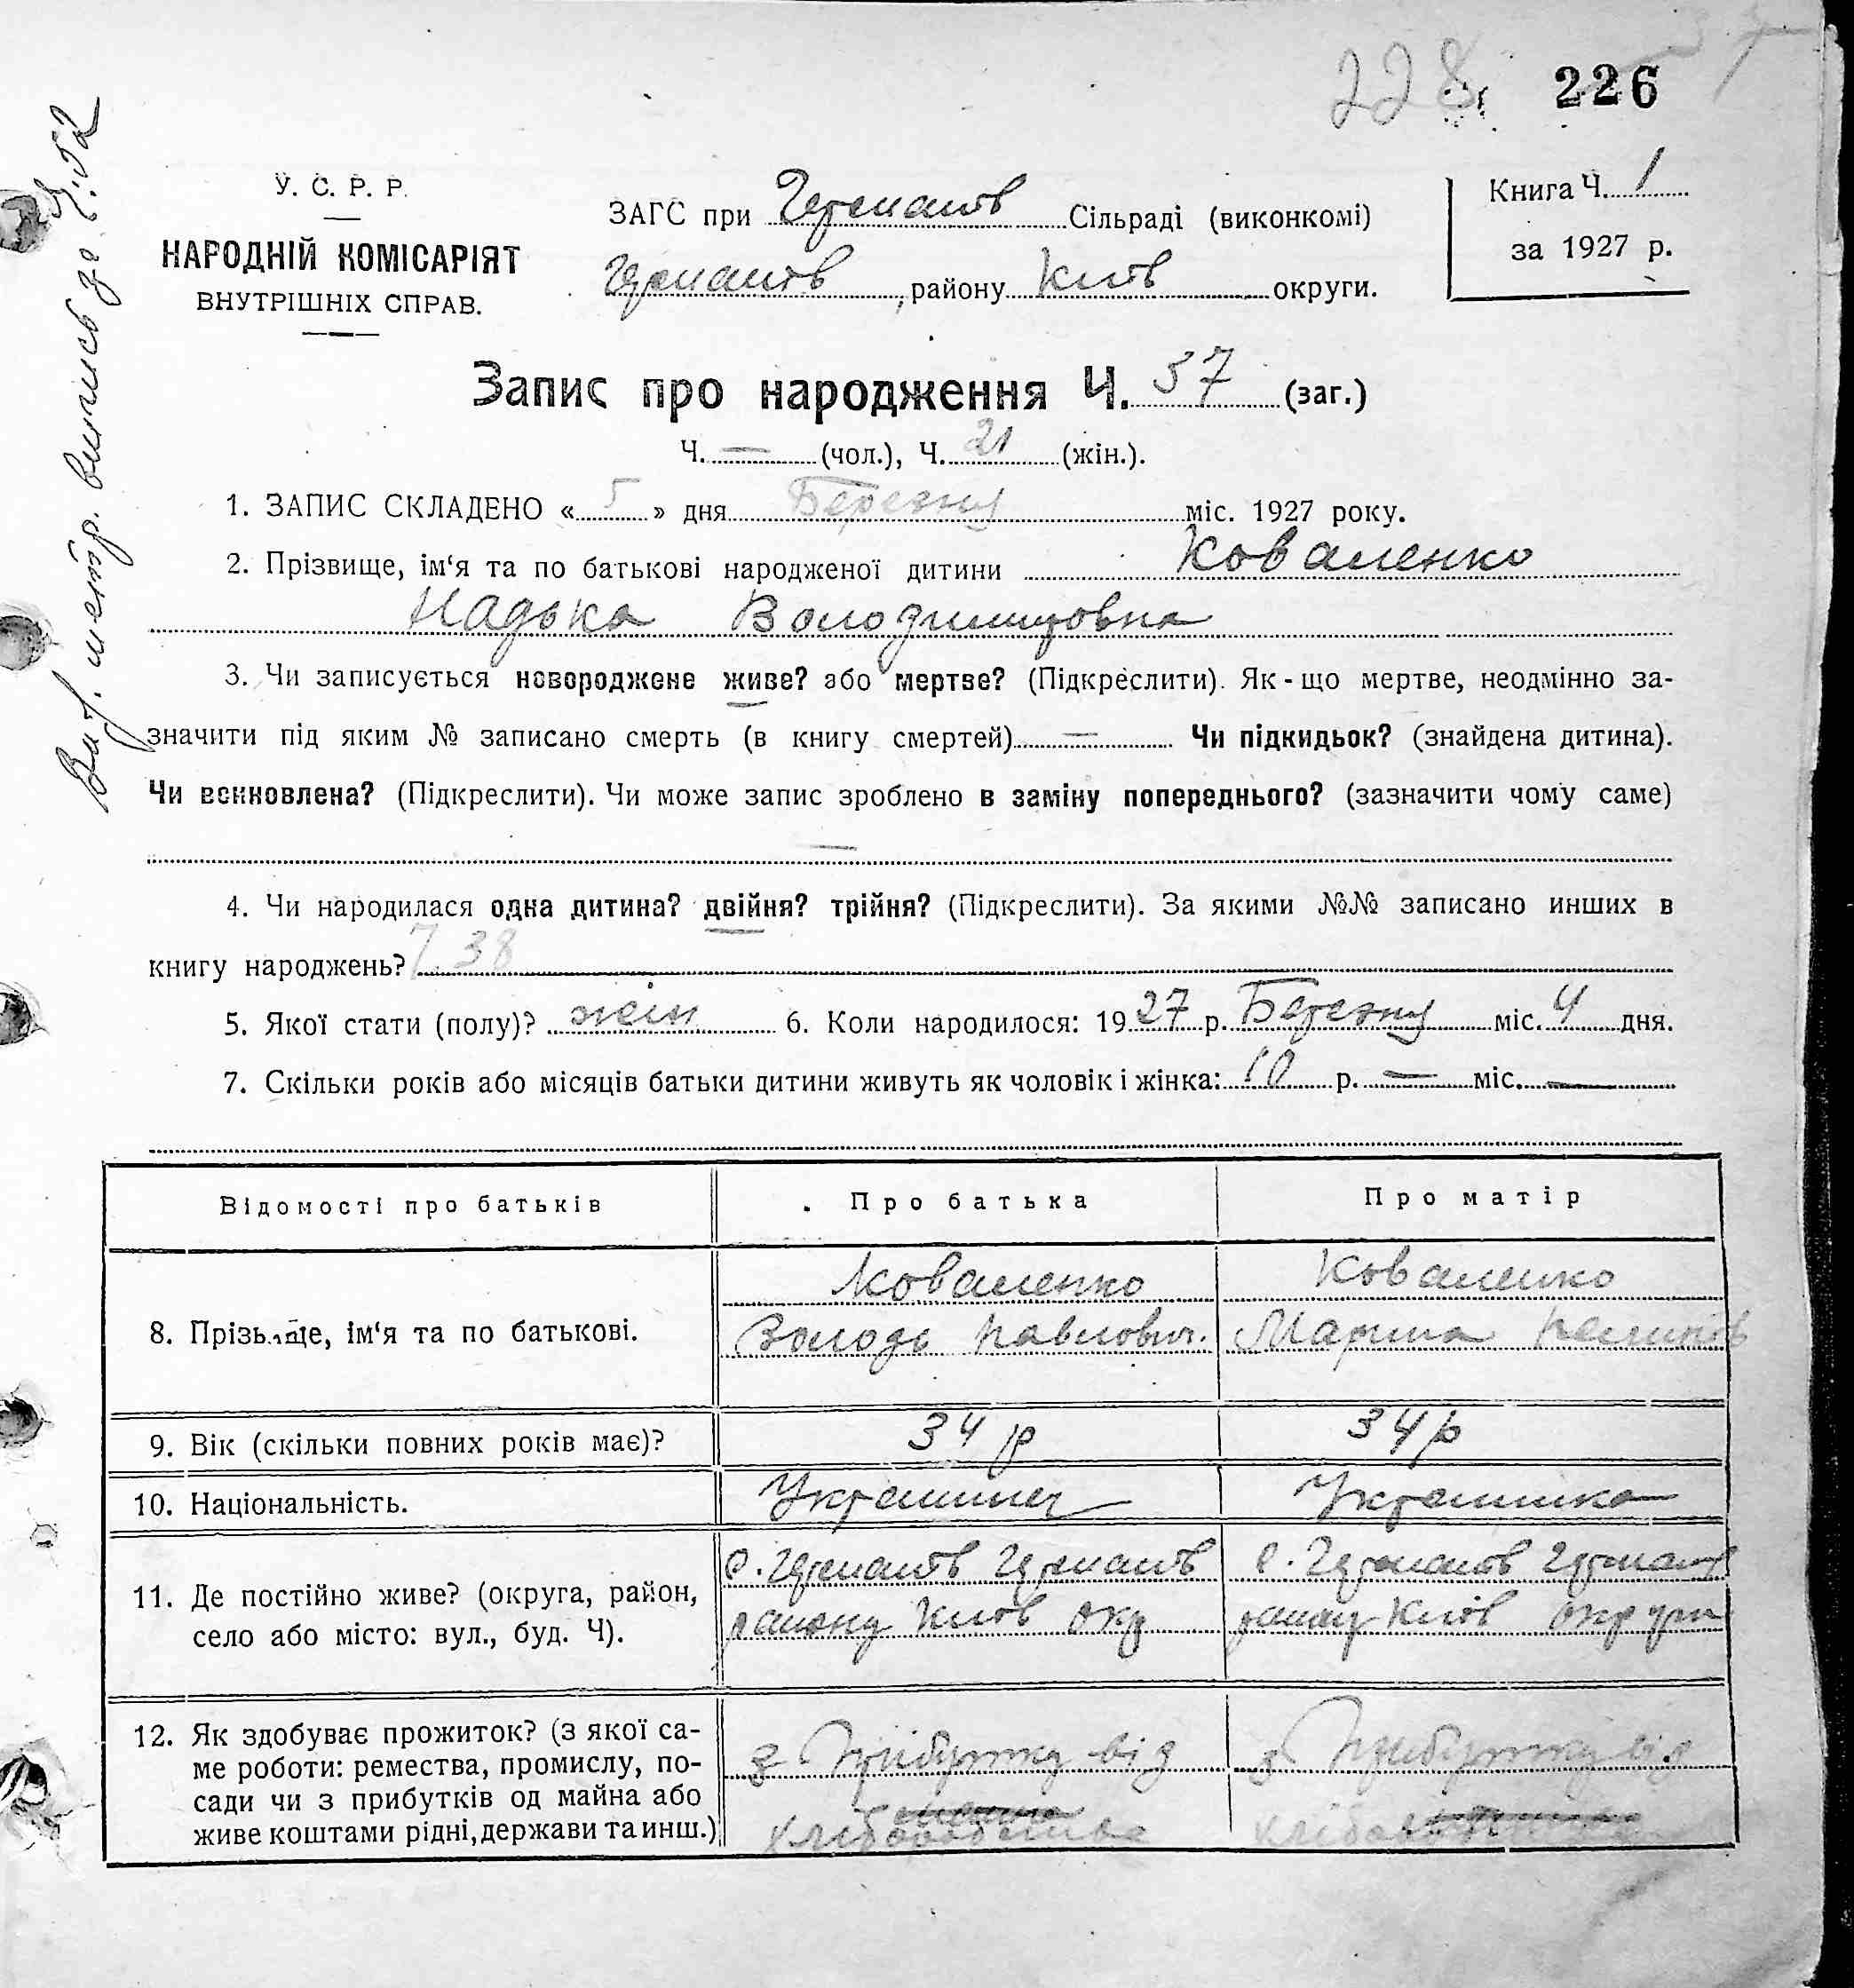 228 226
У. С. Р. Р.
НАРОДНІЙ КОМІСАРІЯТ
ВНУТРІШНІХ СПРАВ.
ЗАГС при Гурманів Сільраді (виконкомі)
району Київ округи.
Книга Ч. 1
за 1927 р.
Запис про народження Ч. 37 (заг.)
Ч. — (чол.), Ч. 21 (жін.).
1. ЗАПИС СКЛАДЕНО « 5 » дня Березня міс. 1927 року.
2. Прізвище, ім‘я та по батькові народженої дитини Коваленко
Надька Володимировна
3. Чи записується новороджене живе? або мертве? (Підкреслити). Як-що мертве, неодмінно за-
значити під яким № записано смерть (в книгу смертей) — Чи підкидьок? (знайдена дитина).
Чи всиновлена? (Підкреслити). Чи може запис зроблено в заміну попереднього? (зазначити чому саме)
—
4. Чи народилася одна дитина? двійня? трійня? (Підкреслити). За якими №№ записано инших в
книгу народжень? 38
5. Якої стати (полу)? жін 6. Коли народилося: 1927 р. Березня міс. 4 дня.
7. Скільки років або місяців батьки дитини живуть як чоловік і жінка: 10 р. — міс. —
Відомості про батьків Про батька Про матір
8. Прізьвище, ім‘я та по батькові. Коваленко Володь Павлович. Коваленко Марина
9. Вік (скільки повних років має)? 34 р 34 р
10. Національність. Українець Українка
11. Де постійно живе? (округа, район,
село або місто: вул., буд. Ч).
району Київ окр
району Київ округи
12. Як здобуває прожиток? (з якої са-
ме роботи: ремества, промислу, по-
сади чи з прибутків од майна або
живе коштами рідні, держави та инш.)
з Прибутку від
з Прибутку від